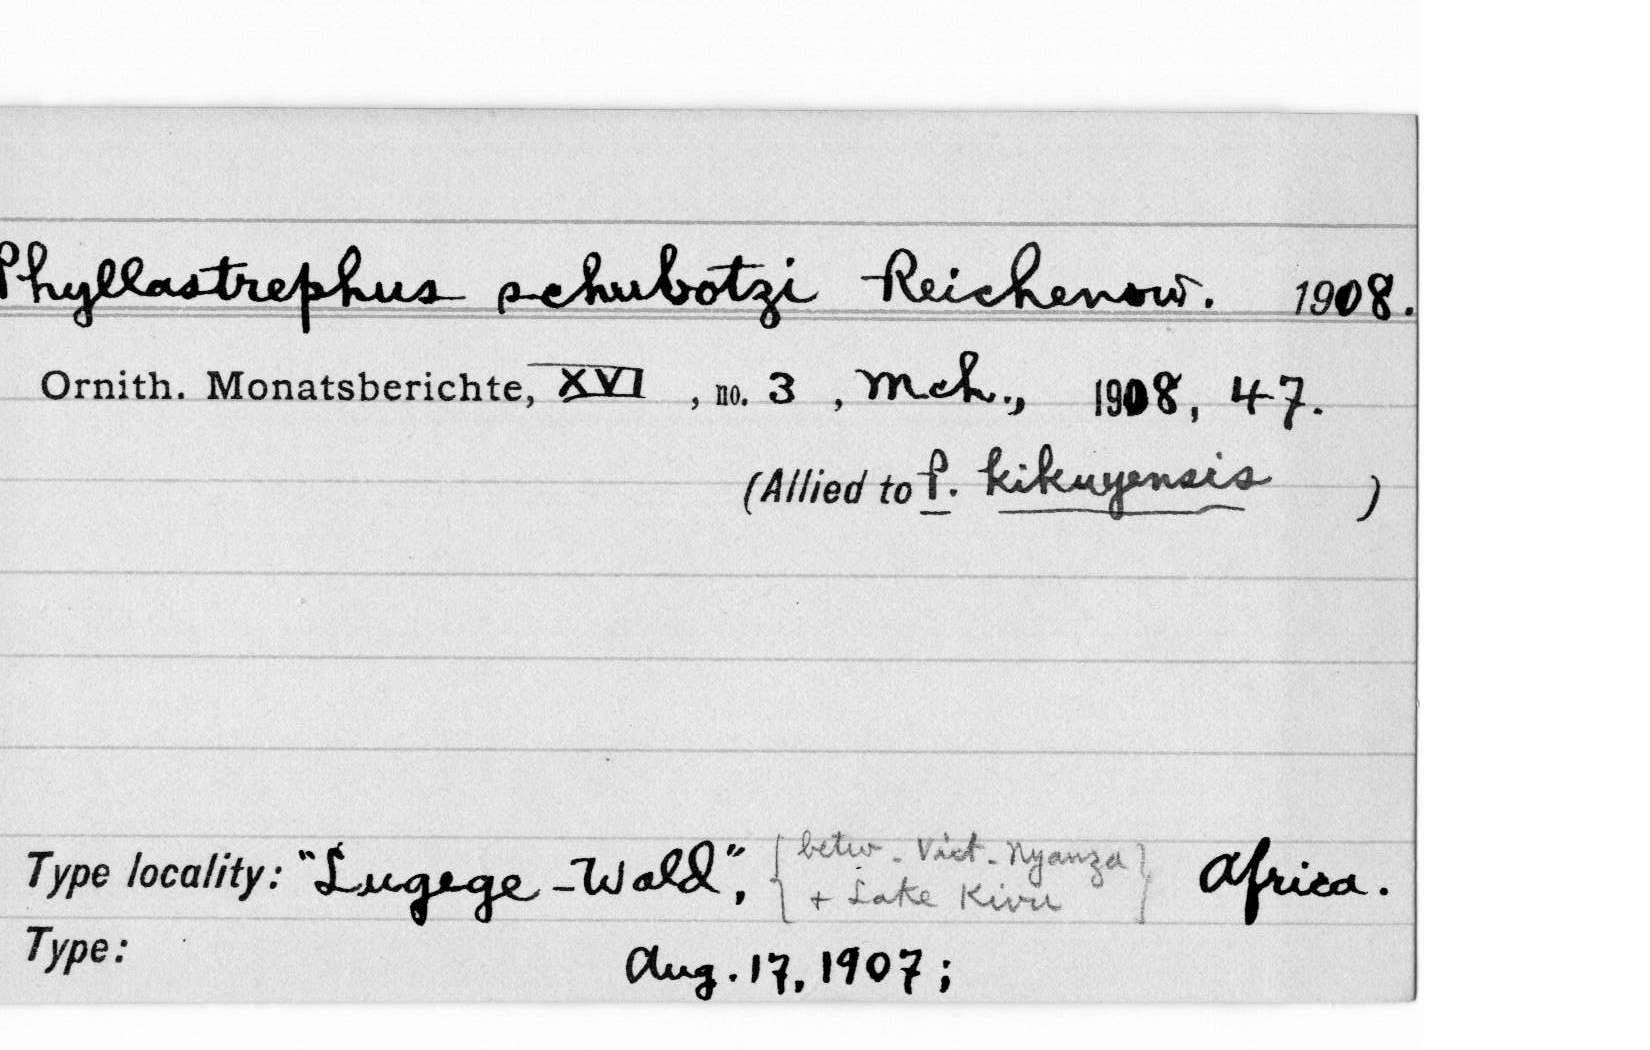 Phyllastrephus schubotzi Reichenow. 1908.
Ornith. Monatsberichte, XVI, no. 3, Mch., 1908, 47.
(Allied to P. kikuyensis )
Type locality: "Lugege-Wald", {betw. Vict. Nyanza
+ Lake Kivu} Africa.
Type: Aug. 17, 1907;